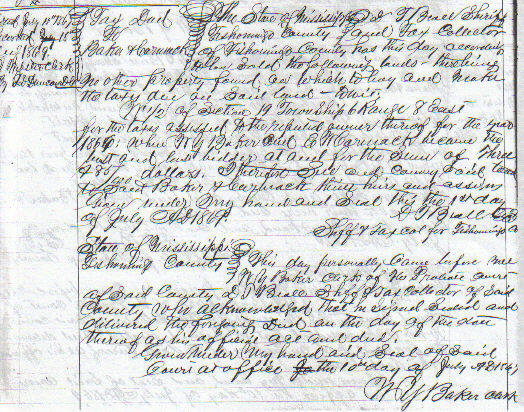 Tax Deed
To
Baker & Carmack
The State of Mississippi
Tishomingo County I Beall Sheriff
and Tax Collector
of Tishomingo County has this day according
to law sold the following lands there being
no other property found on which to levy and make
the taxes due on said land - to wit;
of Section 19 Township 6 Range 8 East
for the taxes assessed to the reputed owner thereof for the year
186 When W Y Baker and Carmack became the
best and last bidder at and for the sum of Three
dollars. Therefore I sell and convey said land
to said Baker & Carmack their heirs and assigns
Given under my hand and seal this the 1st day
of July AD 186
Beall
Shff & Tax col for Tishomingo
State of Mississippi
Tishomingo County
This day personally came before me
W Y Baker clerk of the Probate court
of said County Beall Shff & Tax Collector of said
County who acknowledged that he signed sealed and
delivered the foregoing deed on the day of the date
thereof as his official act and deed.
Given under my hand and seal of said
Court at office the 10th day of July AD 186
W Y Baker clerk